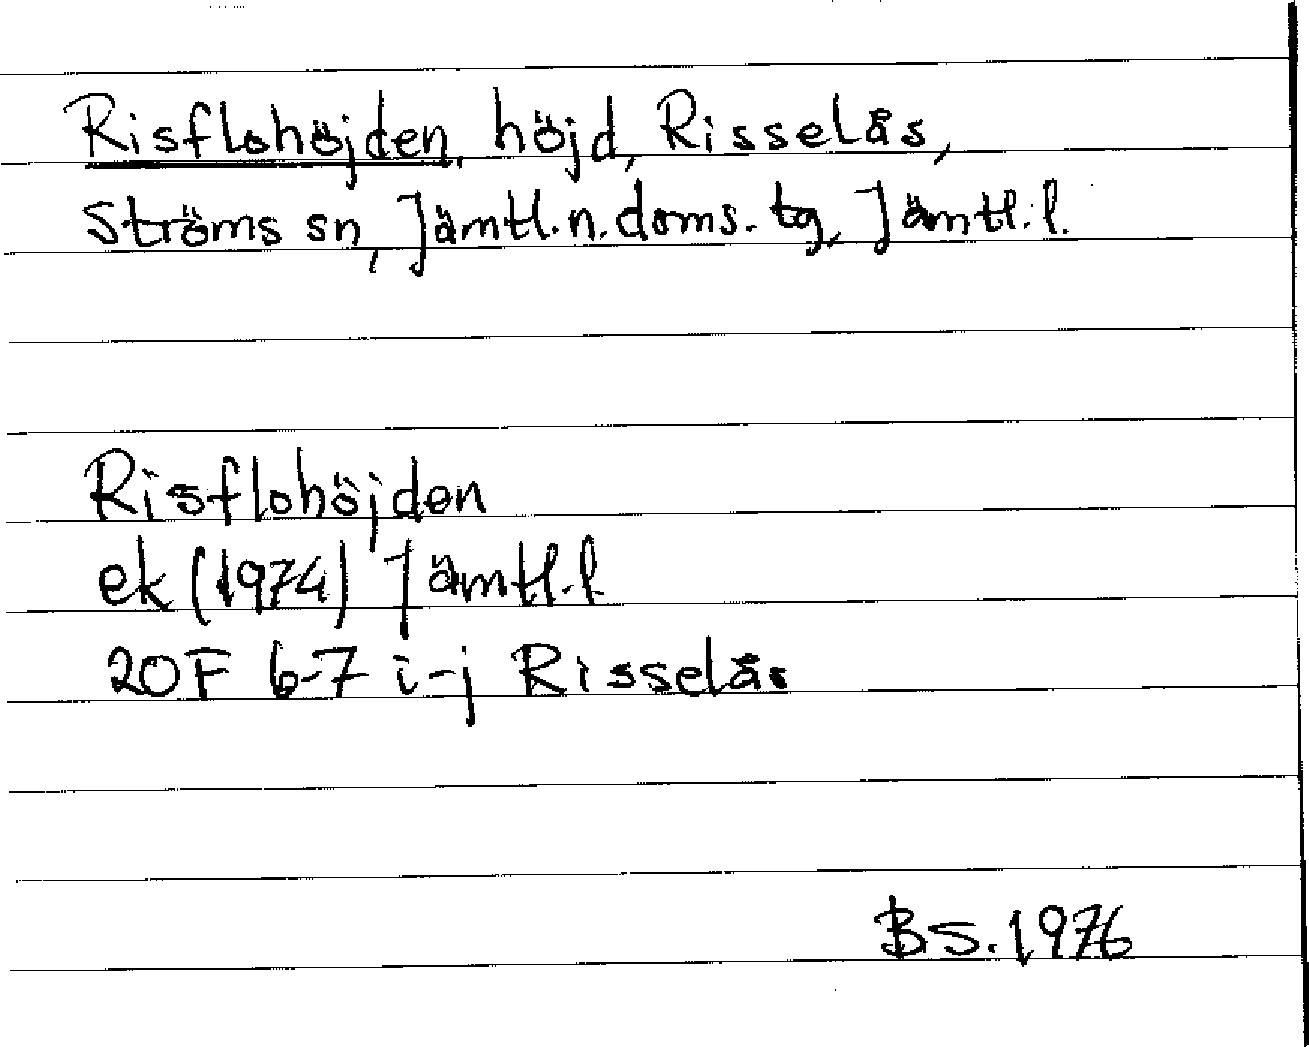 Risflohöjden, höjd, Risselås,
Ströms sn, Jämtl.n.doms.tg, Jämtl.l.
Risflohöjden
ek (1974) Jämtl.l
20F 6-7 i-j Risselås
BS.1976